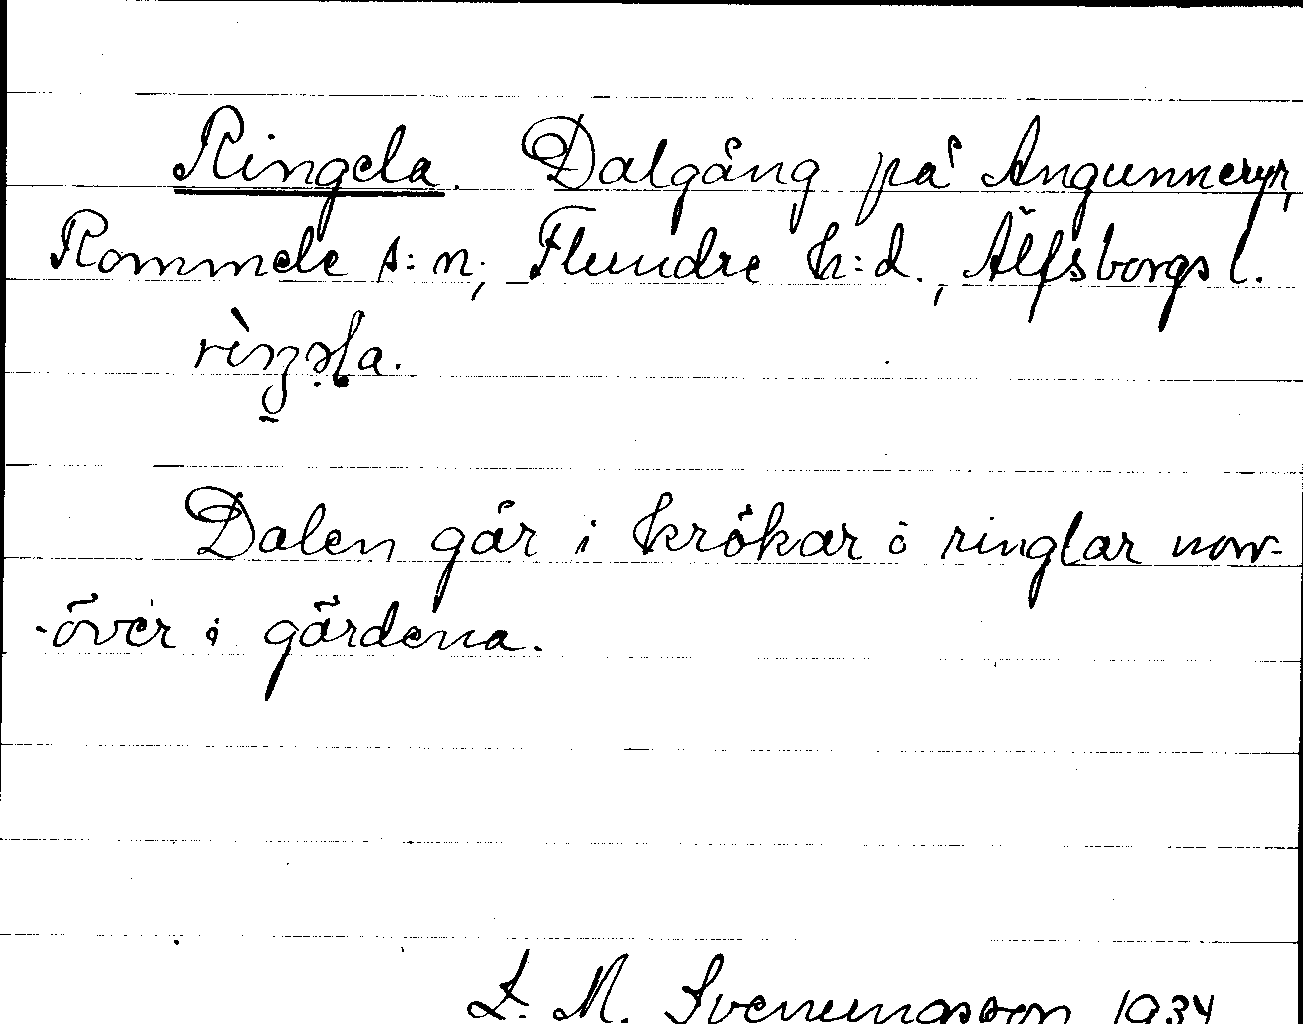 Ringela. Dalgång på Angunneryr,
Rommele s:n, Flundre h:d., Älfsborgs l.
Dalen går i krökar å ringlar norr-
över i gärdena.
M. Svenungsson 1934